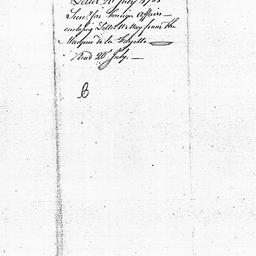 Letter 20 July 1785
Secy for Foreign Affairs
enclosing Letter 11 May from the
Marquis de la Fayette
Read 20 July. —